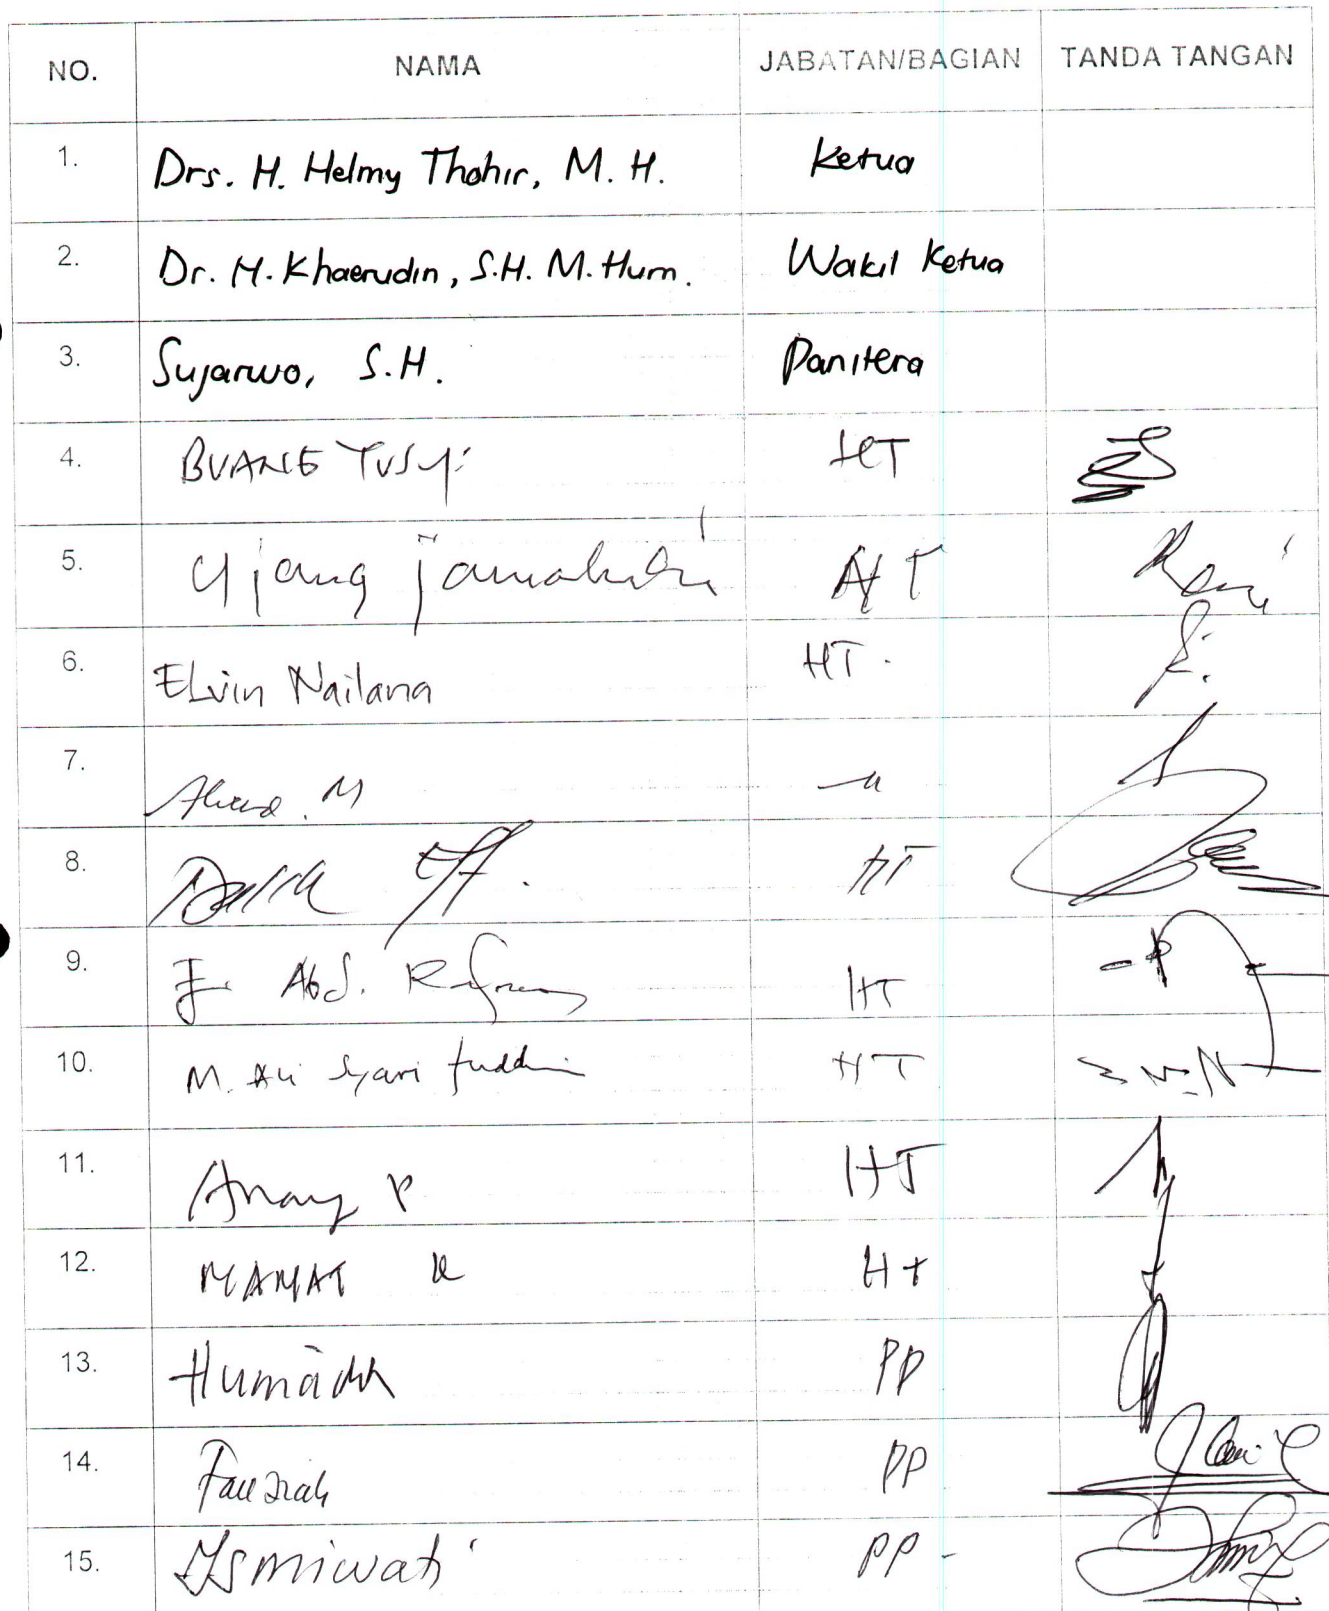 NO. NAMA JABATAN/BAGIAN TANDA TANGAN
1. Drs. H. Helmy Thohir, M. H. Ketua
2. Dr. H. Khaerudin, S.H. M. Hum. Wakil Ketua
3. Sujarwo, S.H. Panitera
4. BUANG YUSUF HT
5. Ujang Jamaludin HT
6. Elvin Nailana HT.
7. M
8. HT
9. E. Abd. HT
10. M. Ali Syarifuddin HT
11. Anang P HT
12. MAMAT HT
13. Humaidah PP
14. Fauziah PP
15. Ismiwati PP -